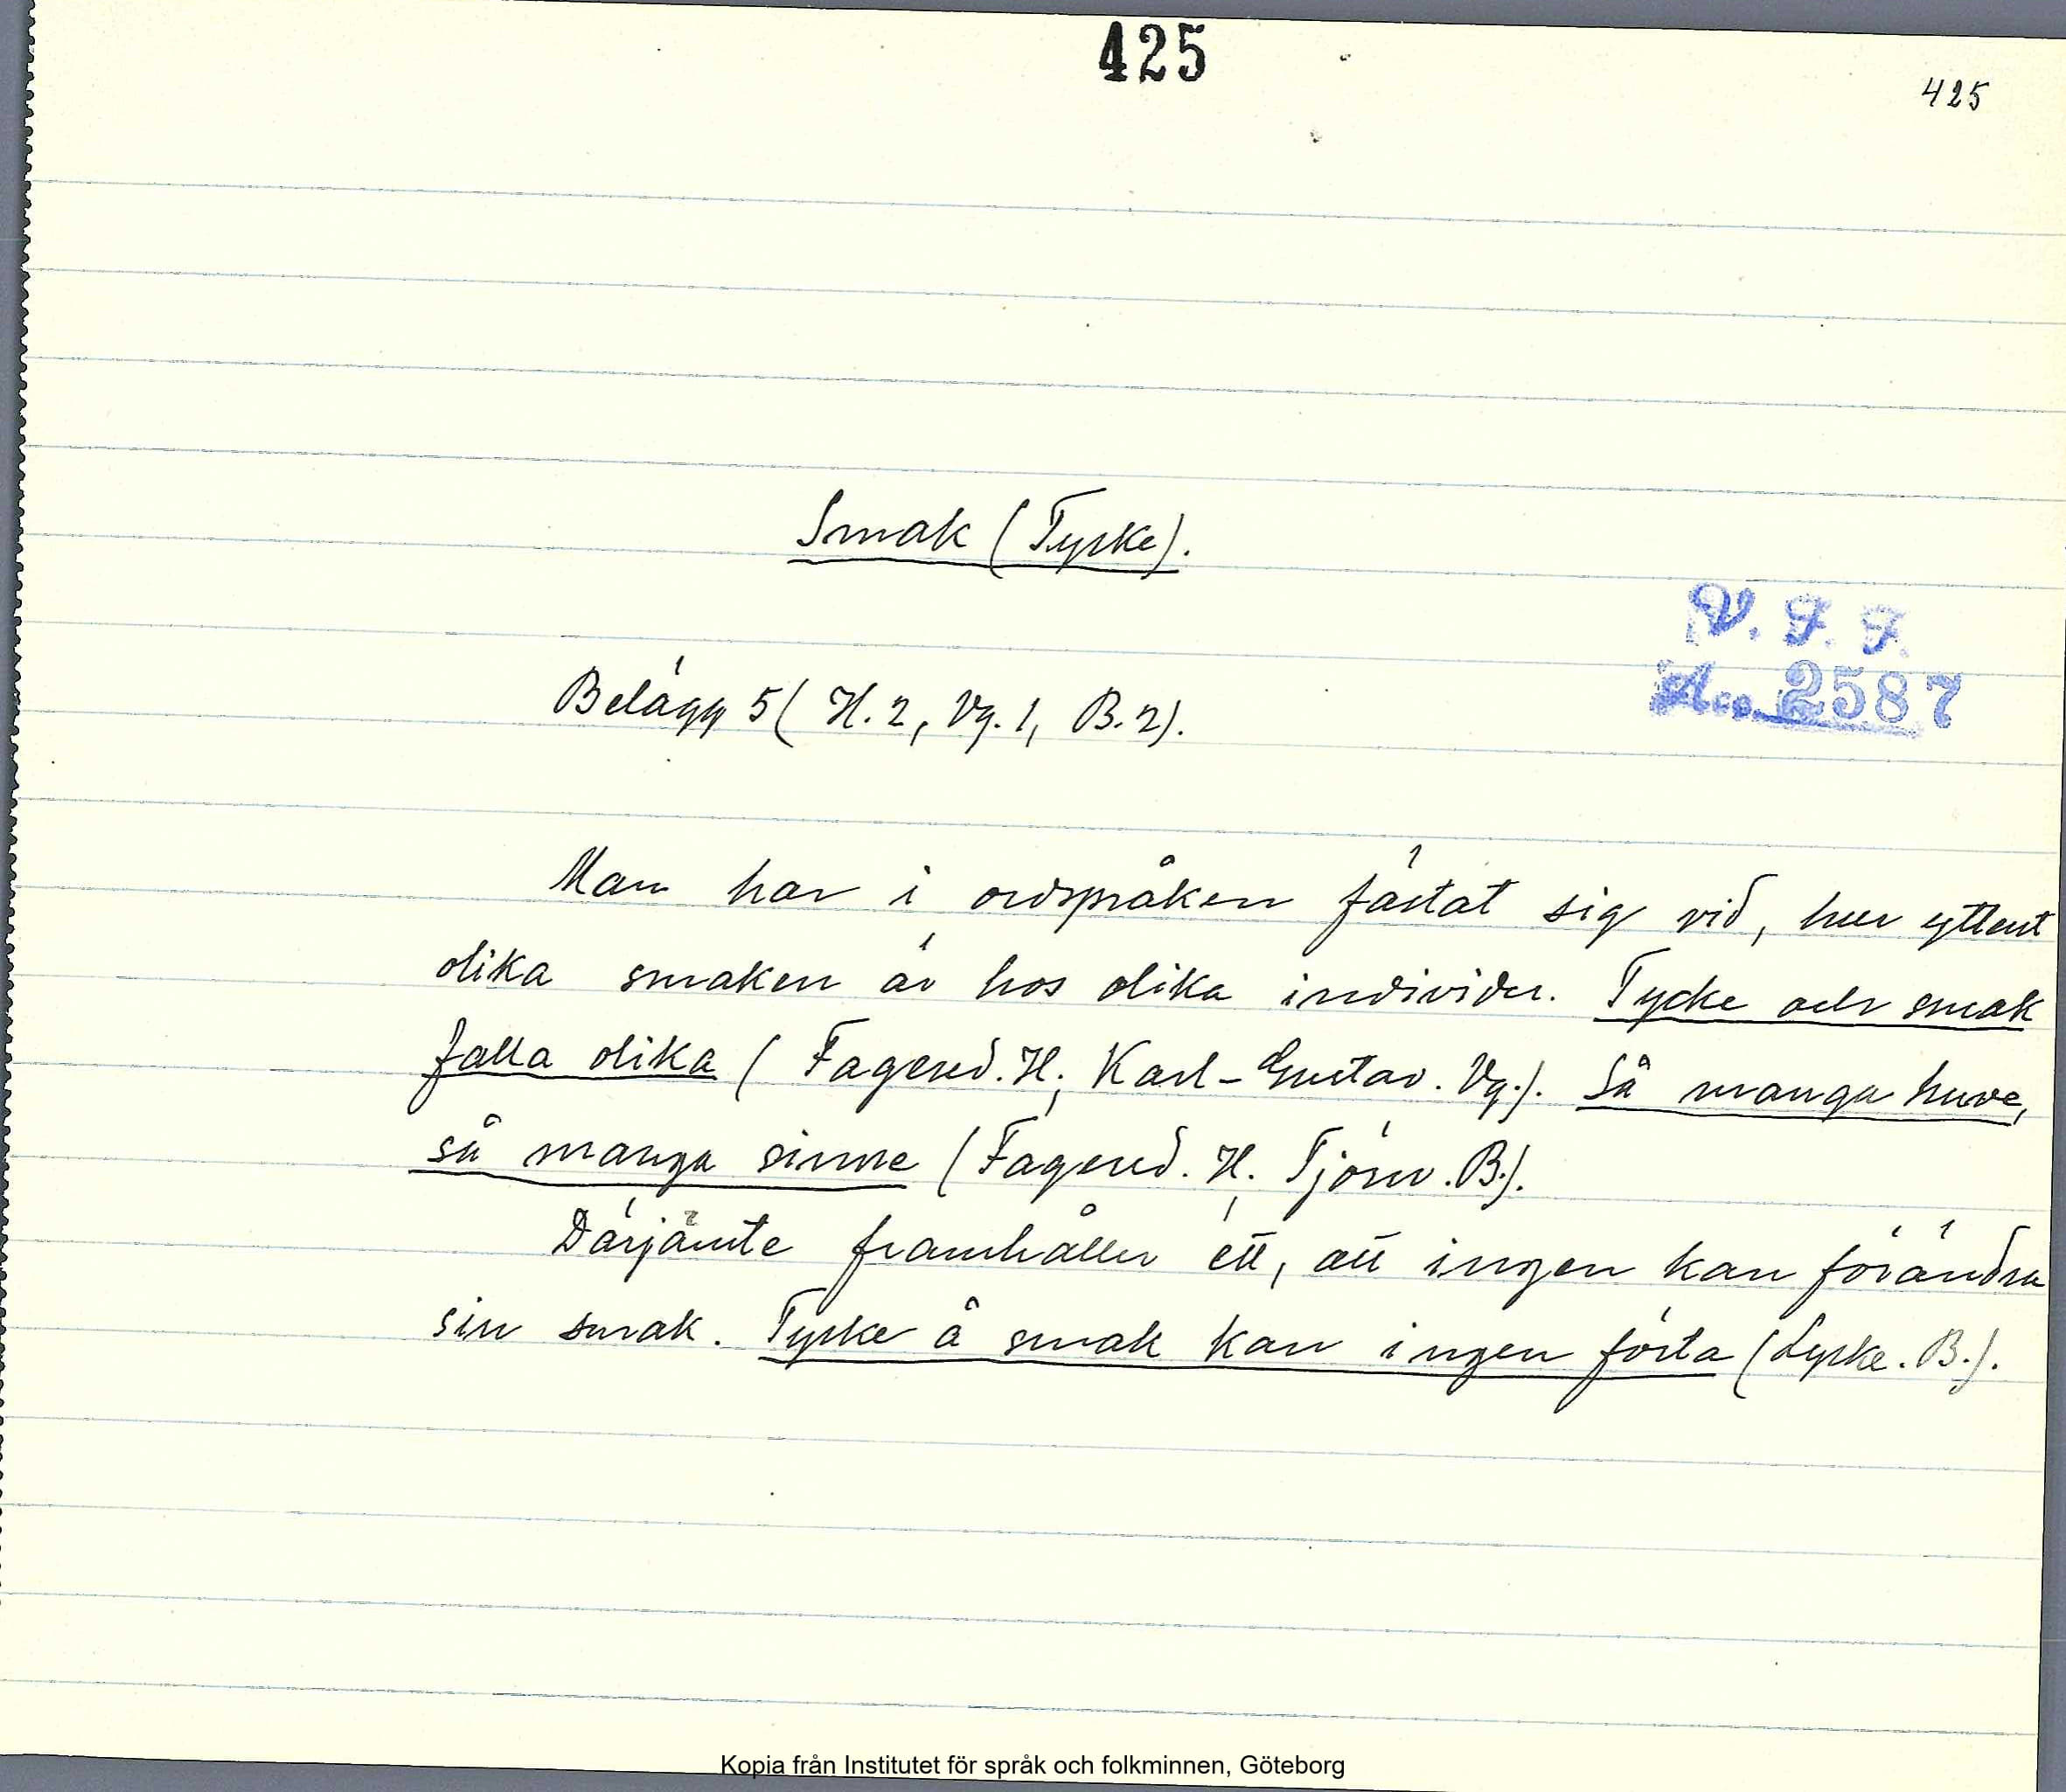 425
425
Smak (Tycke).
V. F. F.
Acc. 2587
Belägg 5 (H. 2, Vg. 1, B. 2).
Man har i ordspråken fästat sig vid, hur ytterst
olika smaken är hos olika individer. Tycke och smak
falla olika (Fagered. H.; Karl-Gustav. Vg.). Så manga huve,
så manga sinne (Fagered. H. Tjörn. B.).
Därjämte framhåller ett, att ingen kan förändra
sin smak. Tycke å smak kan ingen förta (Lycke. B.).
Kopia från Institutet för språk och folkminnen, Göteborg